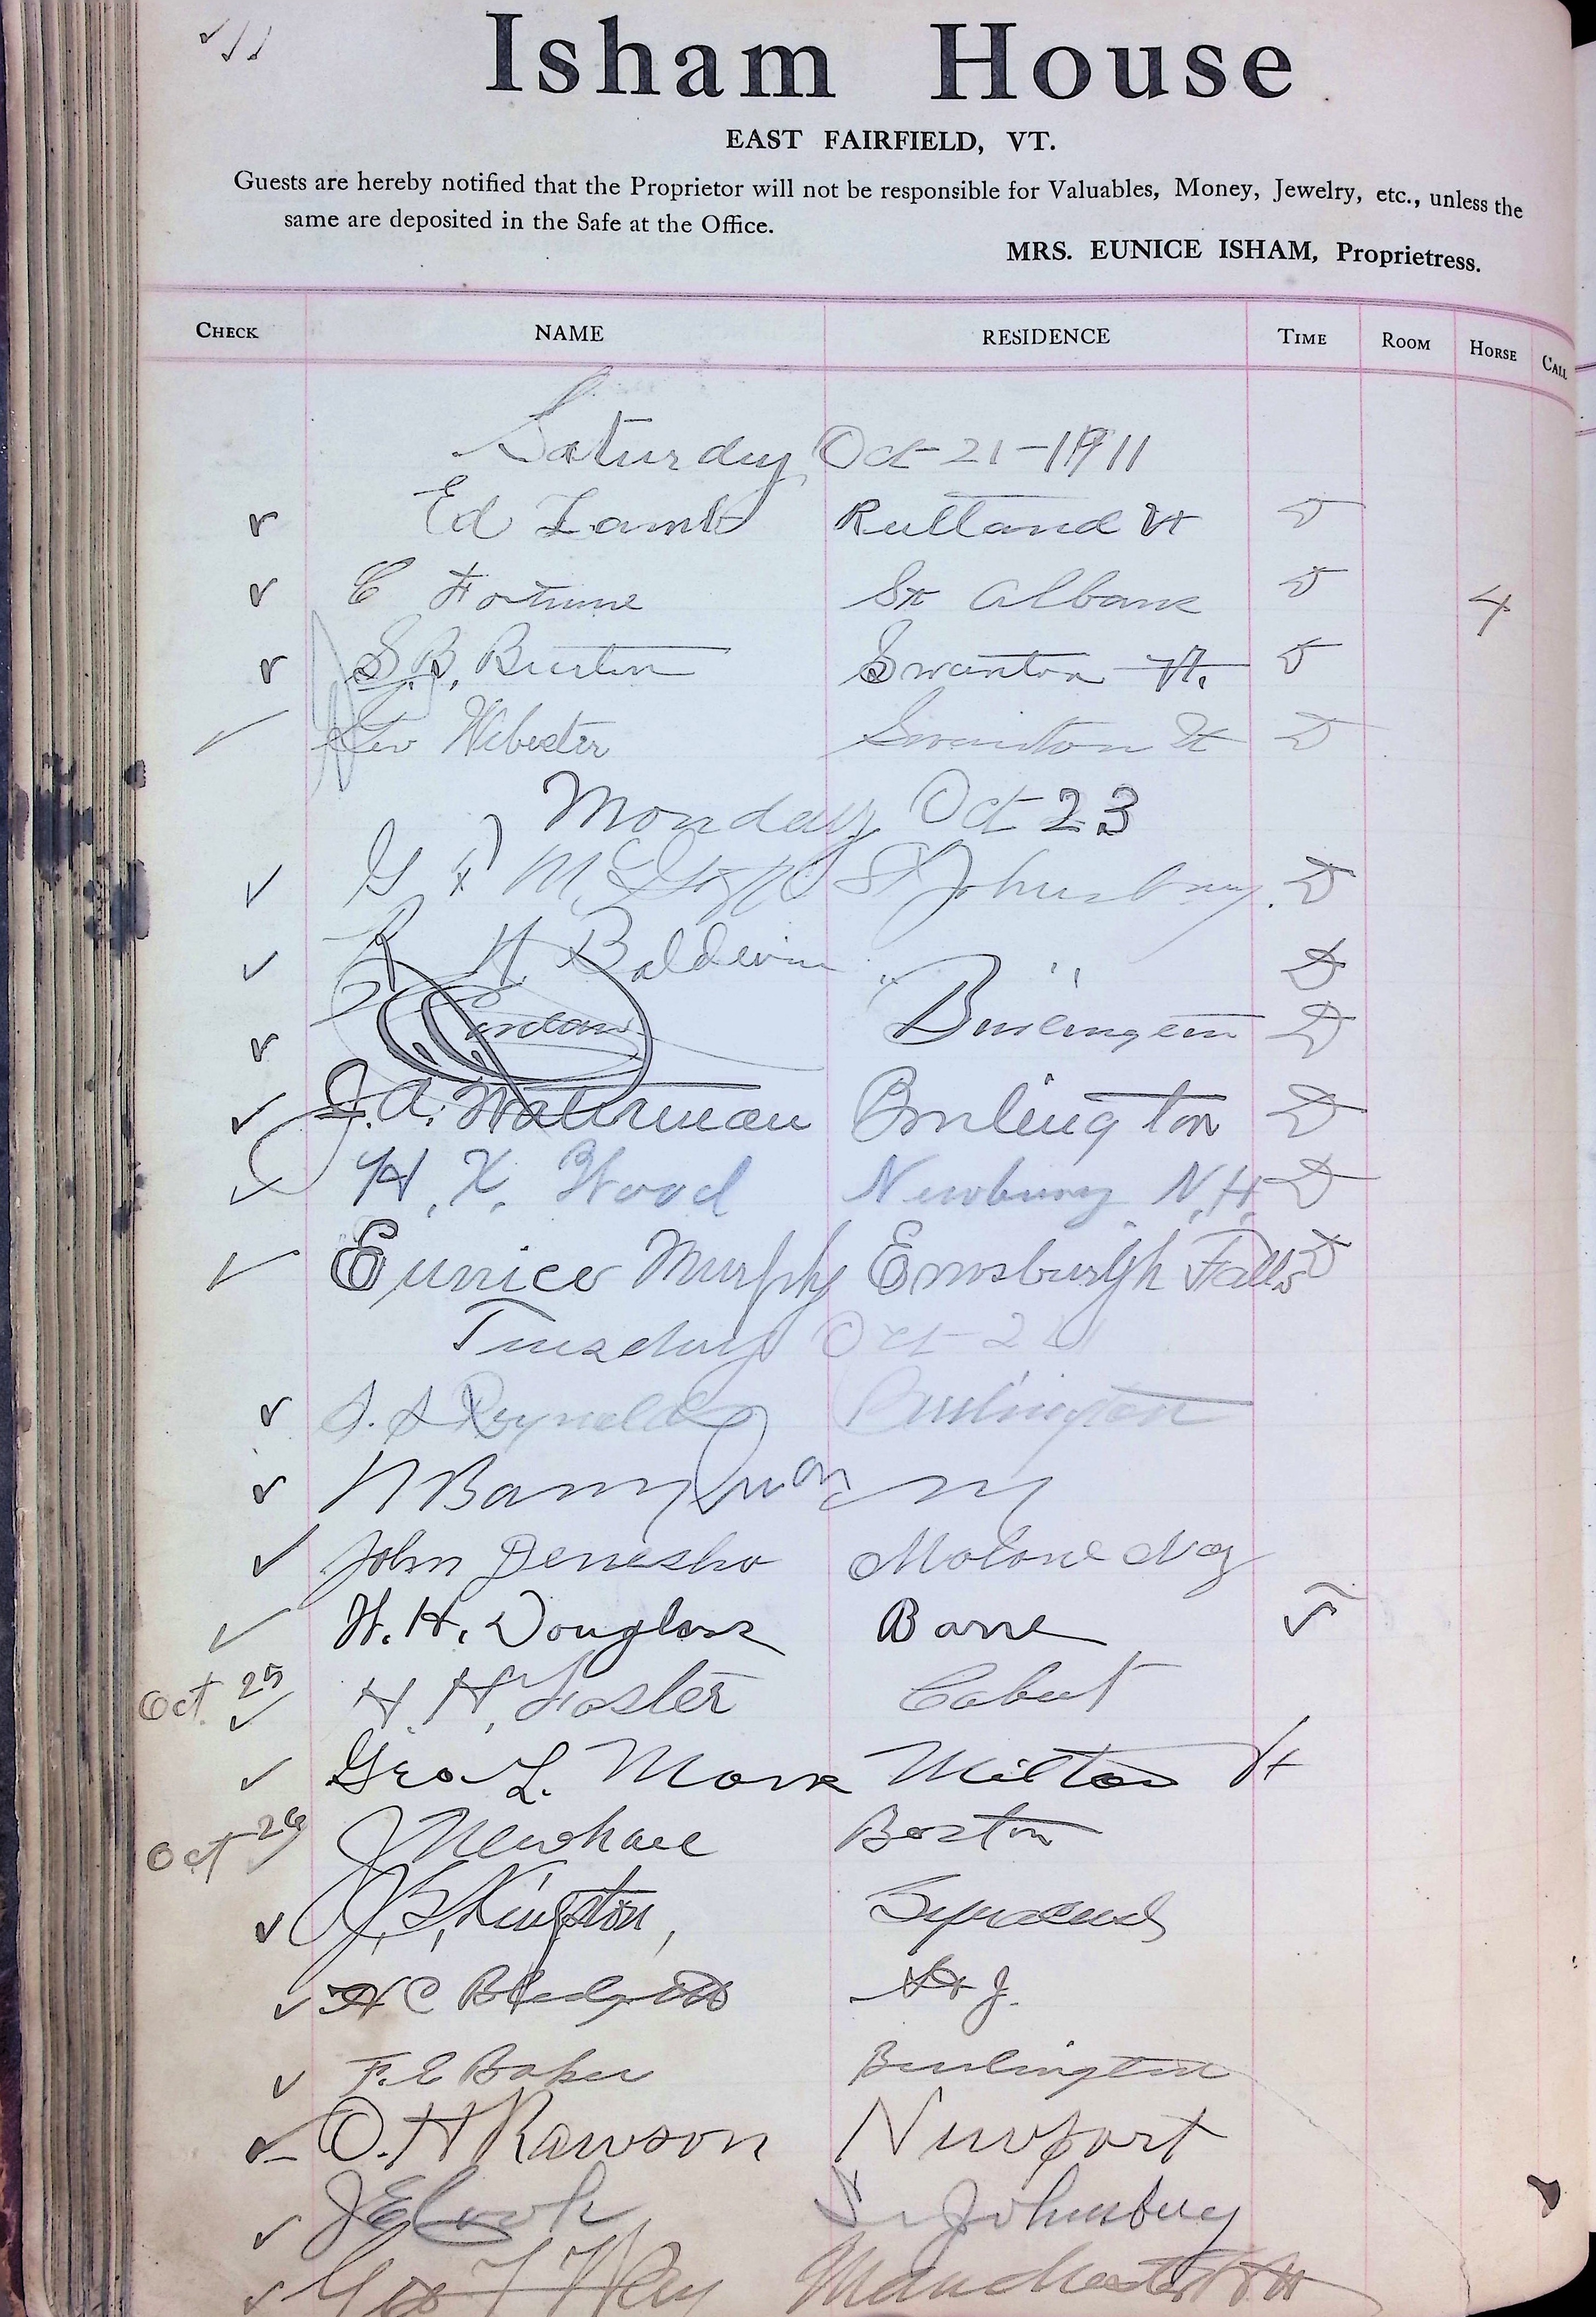 Isham House
EAST FAIRFIELD, VT.
Guests are hereby notified that the Proprietor will not be responsible for Valuables, Money, Jewelry, etc., unless the
same are deposited in the Safe at the Office.
MRS. EUNICE ISHAM, Proprietress.
CHECK NAME RESIDENCE TIME ROOM HORSE CALL
Saturday Oct-21-1911
Ed Lamb Rutland Vt D
C Fortune St Albans D 4
S.B. Burton Swanton Vt. D
Webster Swanton Vt D
Monday Oct 23
G St Johnsbury. D
R H. Baldwin " " D
Burlington D
J.A. Waterman Burlington D
H. K. Wood Newbury N.H. D
Eunice Murphy Enosburgh Falls D
Tuesday Oct-24
Reynolds Burlington
N
John Denesho Malone NY
W. H. Douglass Barre
Oct 25 H. H. Foster Cabot
Geo L. Milton Vt
Oct 26 J Newhall Boston
J.B. Kingston, Syracuse
H C Blodgett St J.
F. E Baker Burlington
O. H Rawson Newport
J E Cook St Johnsbury
Manchester N H